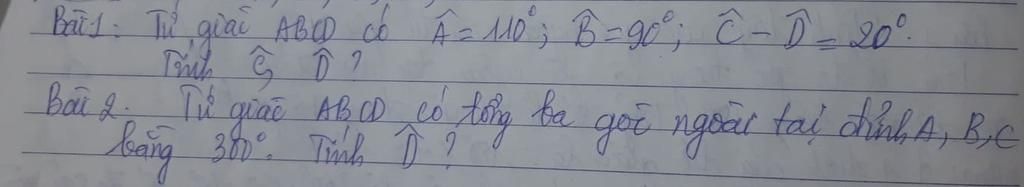 Bài 1: Tứ giác ABCD có Â = 110°; B̂ = 90°; Ĉ - D̂ = 20°.
Tính Ĉ, D̂ ?
Bài 2. Tứ giác ABCD có tổng ba góc ngoài tại đỉnh A, B, C
bằng 300°. Tính D̂ ?